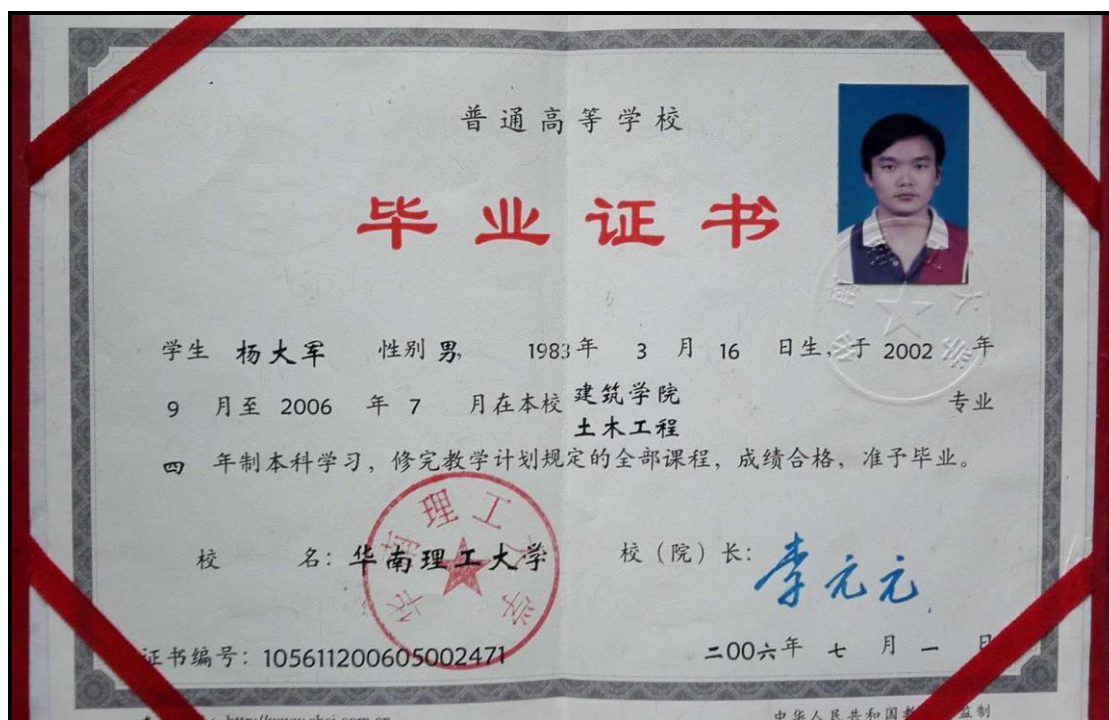 普通高等学校
毕业证书
学生 杨大军 性别 男, 1983年 3 月 16 日生, 于 2002 年
9 月至 2006 年 7 月在本校 建筑学院
土木工程 专业
四 年制本科学习, 修完教学计划规定的全部课程, 成绩合格, 准予毕业。
校 名: 华南理工大学 校（院）长: 李元元
华南理工大学
证书编号: 105611200605002471 二00六年 七 月 一 日
http://www.chsi.com.cn 中华人民共和国教 监制